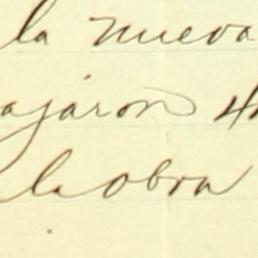 la nueva
ajaron 4
la obra